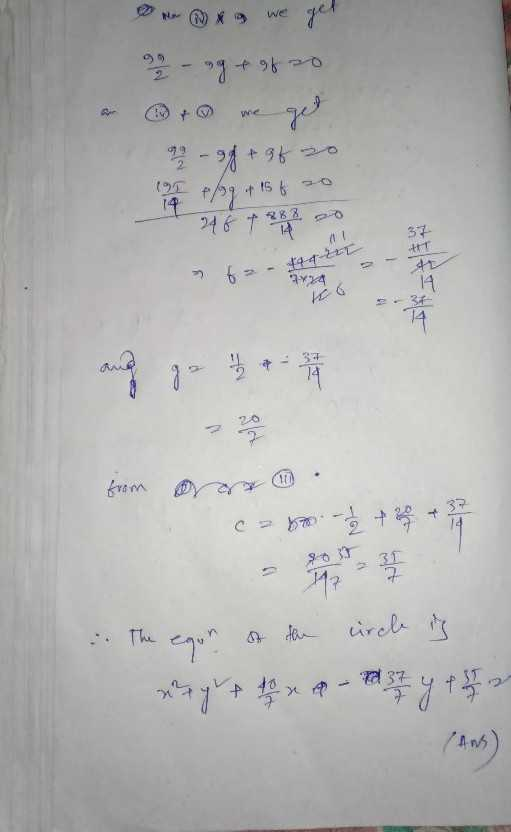 (iv) × 9 we get
99/2 - 9g + 9f = 0
(iv) + (v) we get
99/2 - 9g + 9f = 0
195/14 + 9g + 15f = 0
24f + 888/14 = 0
⇒ f = - 444 222 111/7×24 12 6 = - 111 37/42 14
= - 37/14
and g = 11/2 + - 37/14
= 20/7
from (iii)
c = - 1/2 + 20/7 + 37/14
= 35/7 = 35/7
∴ The equⁿ of the circle is
x² + y² + 40/7 x - 37/7 y + 35/7 =
(Ans)